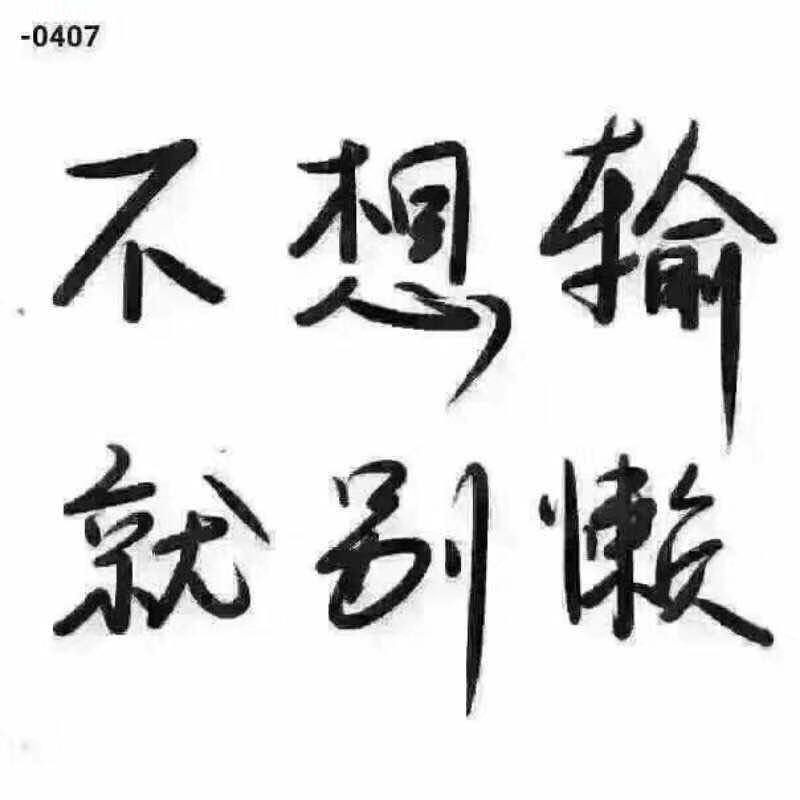 -0407
不想输
就别懒